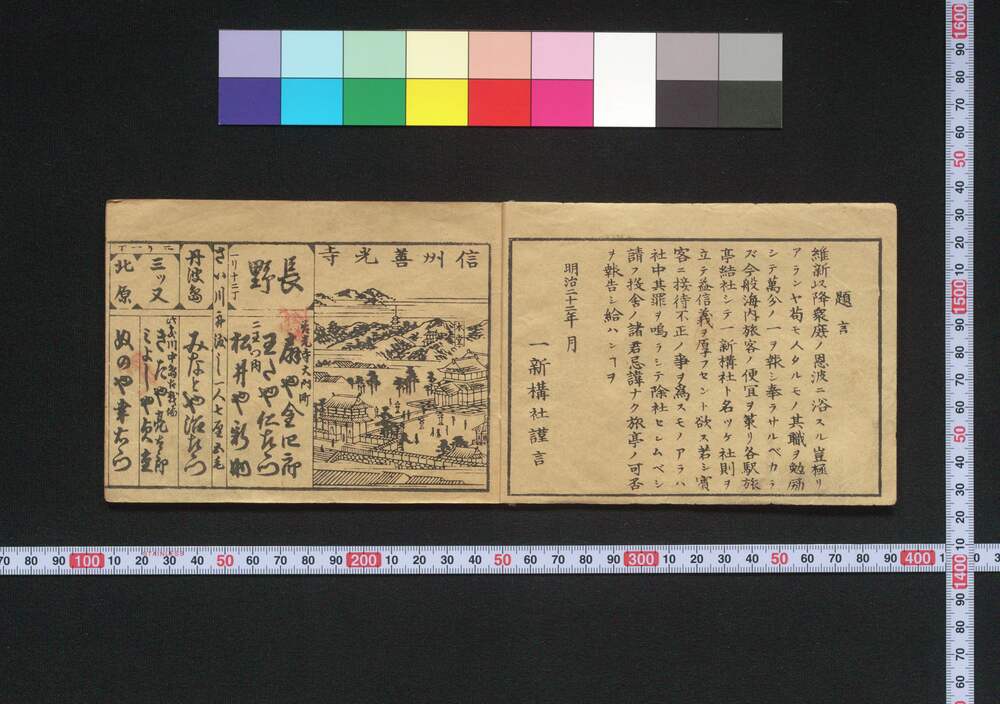 題言
維新以降衆庶ノ恩波ニ浴スル豈極リ
アランヤ苟モ人タルモノ其職ヲ勉励
シテ萬分ノ一ヲ報シ奉ラサルベカラ
ズ今般海内旅客ノ便宜ヲ策リ各駅旅
亭結社シテ一新構社ト名ツケ社則ヲ
立テ益信義ヲ厚フセント欲ス若シ賓
客ニ接待不正ノ事ヲ為スモノアラハ
社中其罪ヲ鳴ラシテ除社セシムベシ
請フ投舎ノ諸君忌諱ナク旅亭ノ可否
ヲ報告シ給ハンヿヲ
明治二十二年 月
一新構社謹言
信州善光寺
本堂
長野
一リ十二丁
善光寺大門町
扇や金四郎
二王つ内
玉や仁左衛門
松井や新助
さい川
舟渡し一人七厘五毛
丹波島
みなとや治左衛門
三ツ又
此間川中島古戦場
きたや亮太郎
みよしや貞吉
北原
ぬのや幸右衛門